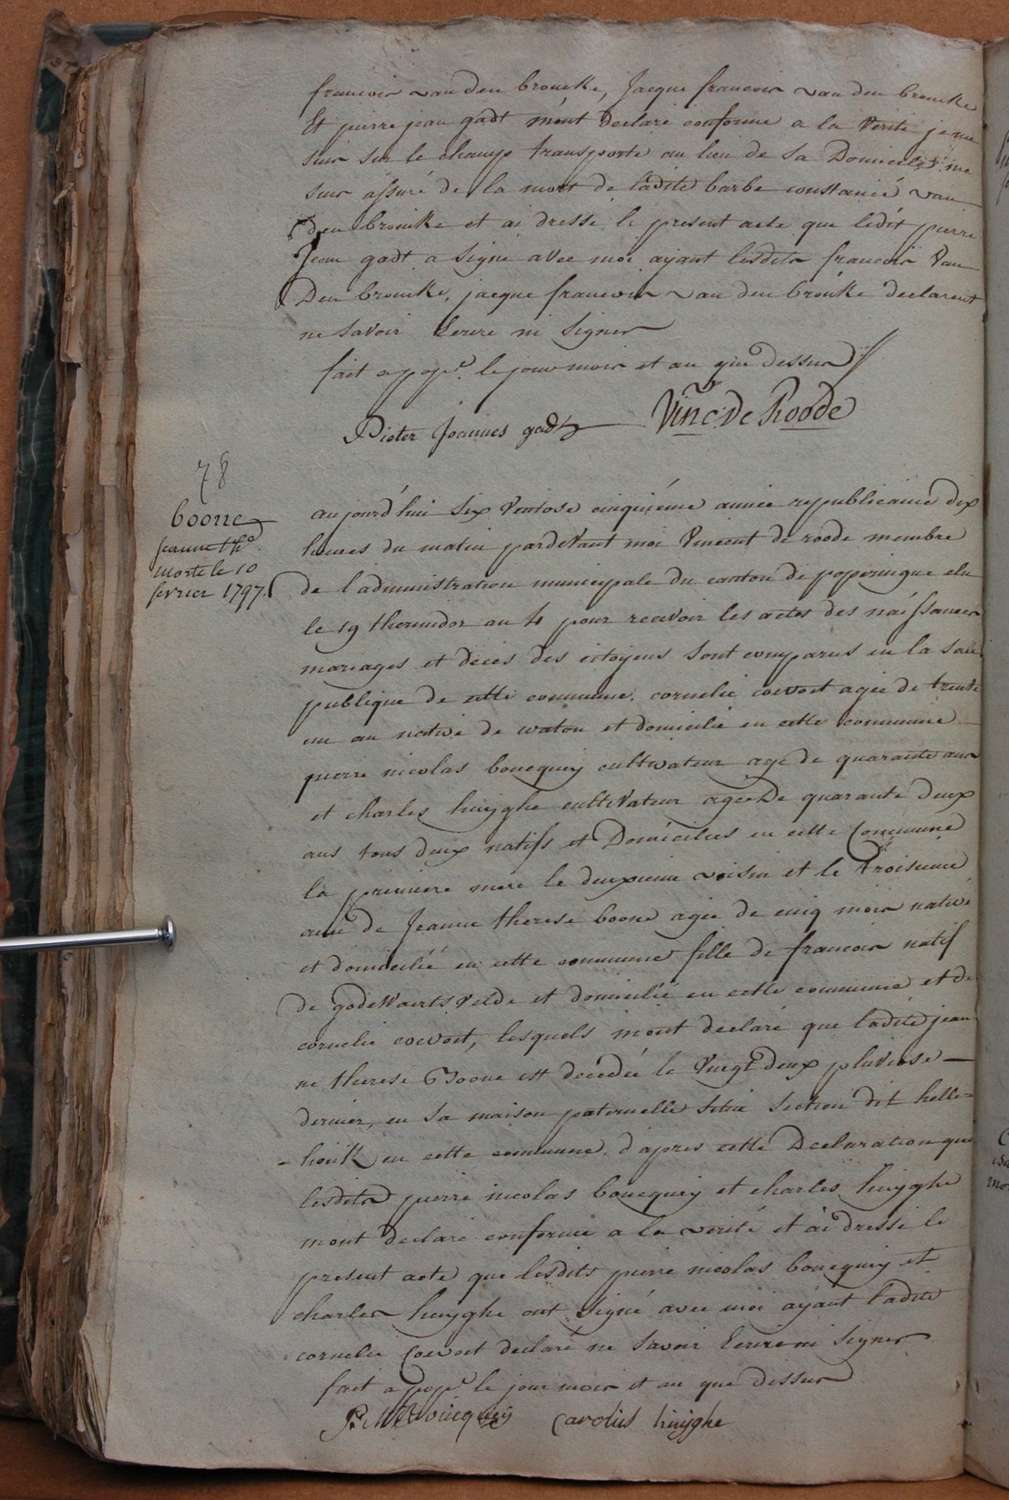 francois van den broucke, Jacque francois van den broucke
Et pierre jean gadt m'ont Declaré conforme a la Verité je me
suis sur le champ transporté au lieu de sa Domicile, me
suis assuré de la mort de ladite barbe constancie van
den broucke et ai dressé le present acte que ledit pierre
Jean gadt a signé avec moi ayant lesdits francois Van
Den broucke, jacque francois van den broucke declarent
ne savoir Ecrire ni signer
fait a pope. le jour mois et an que dessus
Pieter Joannes gadt Vinc: De Roode
78
boone
jeanne the.
morte le 10
fevrier 1797.
aujourd'hui six Ventose cinquiéme année republicaine dix
heures du matin pardevant moi Vincent de roode membre
de l'administration municipale du canton de poperingue elu
le 19 thermidor an 4 pour recevoir les actes des naissances
mariages et deces des citoyens sont comparus en la sale
publique de cette commune. cornelie coevoet agée de trente
un an native de watou et domicilié en cette commune
pierre nicolas boucquey cultivateur agé de quarante ans
et charles huyghe cultivateur agée De quarante Deux
ans tous deux natifs et Domiciliés en cette Commune
la premiere mere le deuxieme voisin et le troisieme
ami de Jeanne therese boone agée de cinq mois native
et domiciliée en cette commune fille de francois natif
de godeWaertsVelde et domicilié en cette commune et de
cornelie coevoet, lesquels m'ont declaré que ladite jean
ne therese Boone est décédée le Vingt Deux pluviose
dernier, en sa maison paternelle sitüé section dit helle-
- houk en cette commune. d'apres cette Declaration que
lesdits pierre nicolas boucquey et charles huyghe
m'ont declaré conforme a la verité et ai dressé le
present acte que lesdits pierre nicolas boucquey et
charles huyghe ont signé avec moi ayant ladite
cornelie Coevoet declaré ne savoir Ecrire ni signer
fait a pope. le jour mois et an que dessus
P: N: Boucquey Carolus huyghe